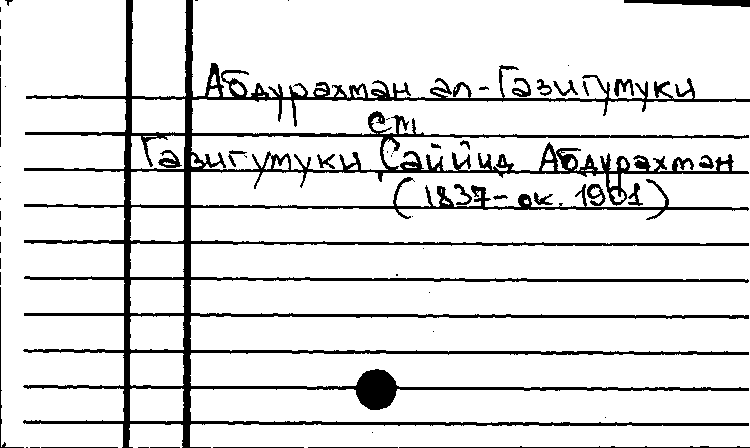 Абдурахман ал-Газигумуки
см.
Газигумуки Саййид Абдурахман
(1837-ок. 1901)